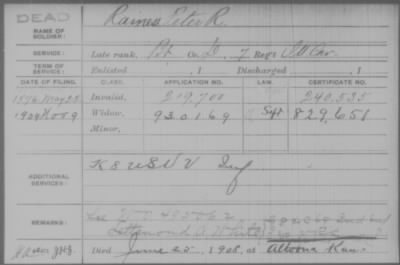 DEAD
NAME OF SOLDIER: Raines, Ester R.
SERVICE: Late rank, Pvt Co. D, 7 Reg't Cav.
TERM OF SERVICE: Enlisted , 1 Discharged , 1
DATE OF FILING. CLASS. APPLICATION NO. LAW. CERTIFICATE NO.
1876 May 25 Invalid, 219,700 240,535
1909 9 Widow, 930169 Sept 829,651
Minor,
ADDITIONAL SERVICES: K 8 U S V V Inf
REMARKS: See 493062
A. White
Died June 25, 1908, at Altoona Kans